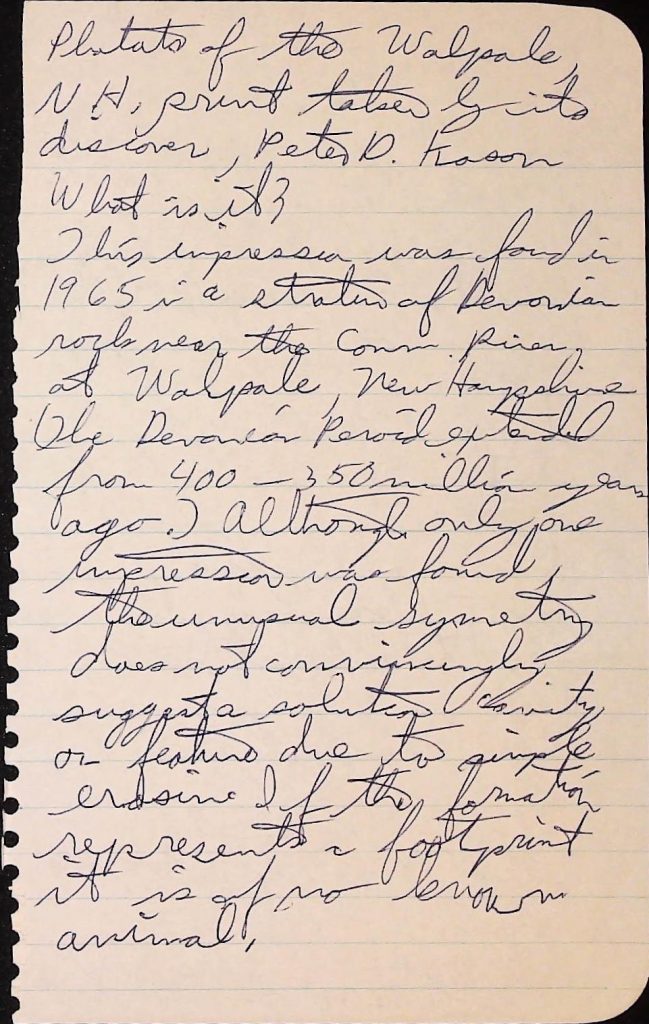 Photato of the Walpole,
N H, print taken by its
discover, Peter D. Kason
What is it?
This impression was found in
1965 in a stratum of Devonian
rock near the Conn. River.
at Walpole, New Hampshire
(The Devonian Peroid extended
from 400 - 350 million years
ago.) Although only one
impression was found,
the unusual symetry
does not convincingly
suggest a solution cavity
or feature due to simple
erosine If the formation
represents a footprint
it is of no known
animal,